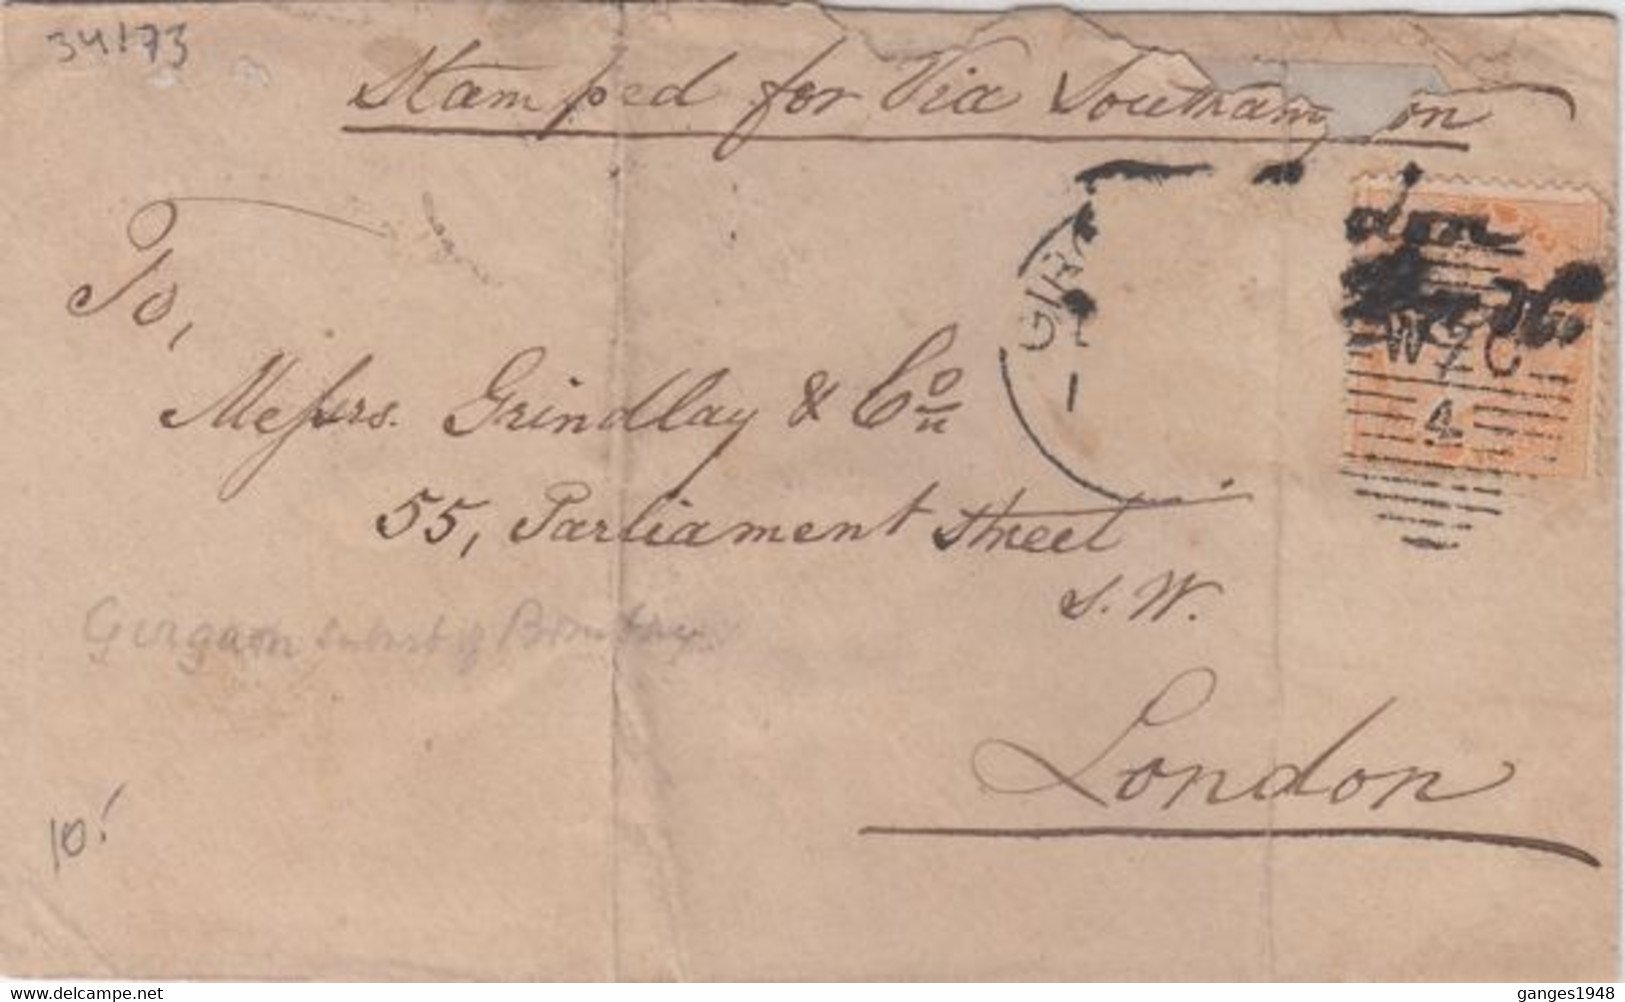 34173
Stamped for Via Southam on
To,
Messrs. Grindlay & Co
55, Parliament Street
S. W.
London
GIR
1
don
W 7 C
4
Girgaon suburb of Bombay
10/
delcampe.net
ganges1948